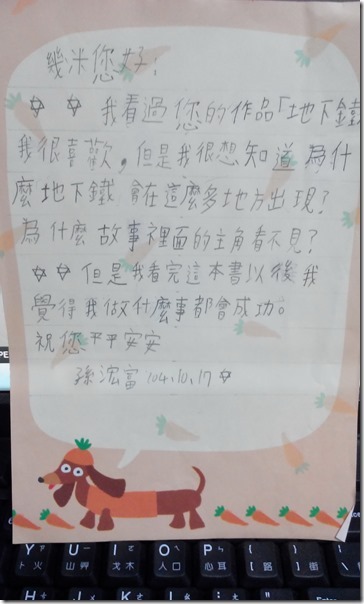 幾米您好：
☆ ☆ 我看過您的作品「地下鐵
我很喜歡，但是我很想知道為什
麼地下鐵會在這麼多地方出現？
為什麼故事裡面的主角看不見？
☆☆但是我看完這本書以後我
覺得我做什麼事都會成功。
祝您平平安安
孫浤富 104.10.17 ☆
Y U I O P { }
卜火 山 戈木 人口 心耳 〔路 〕街
Enter